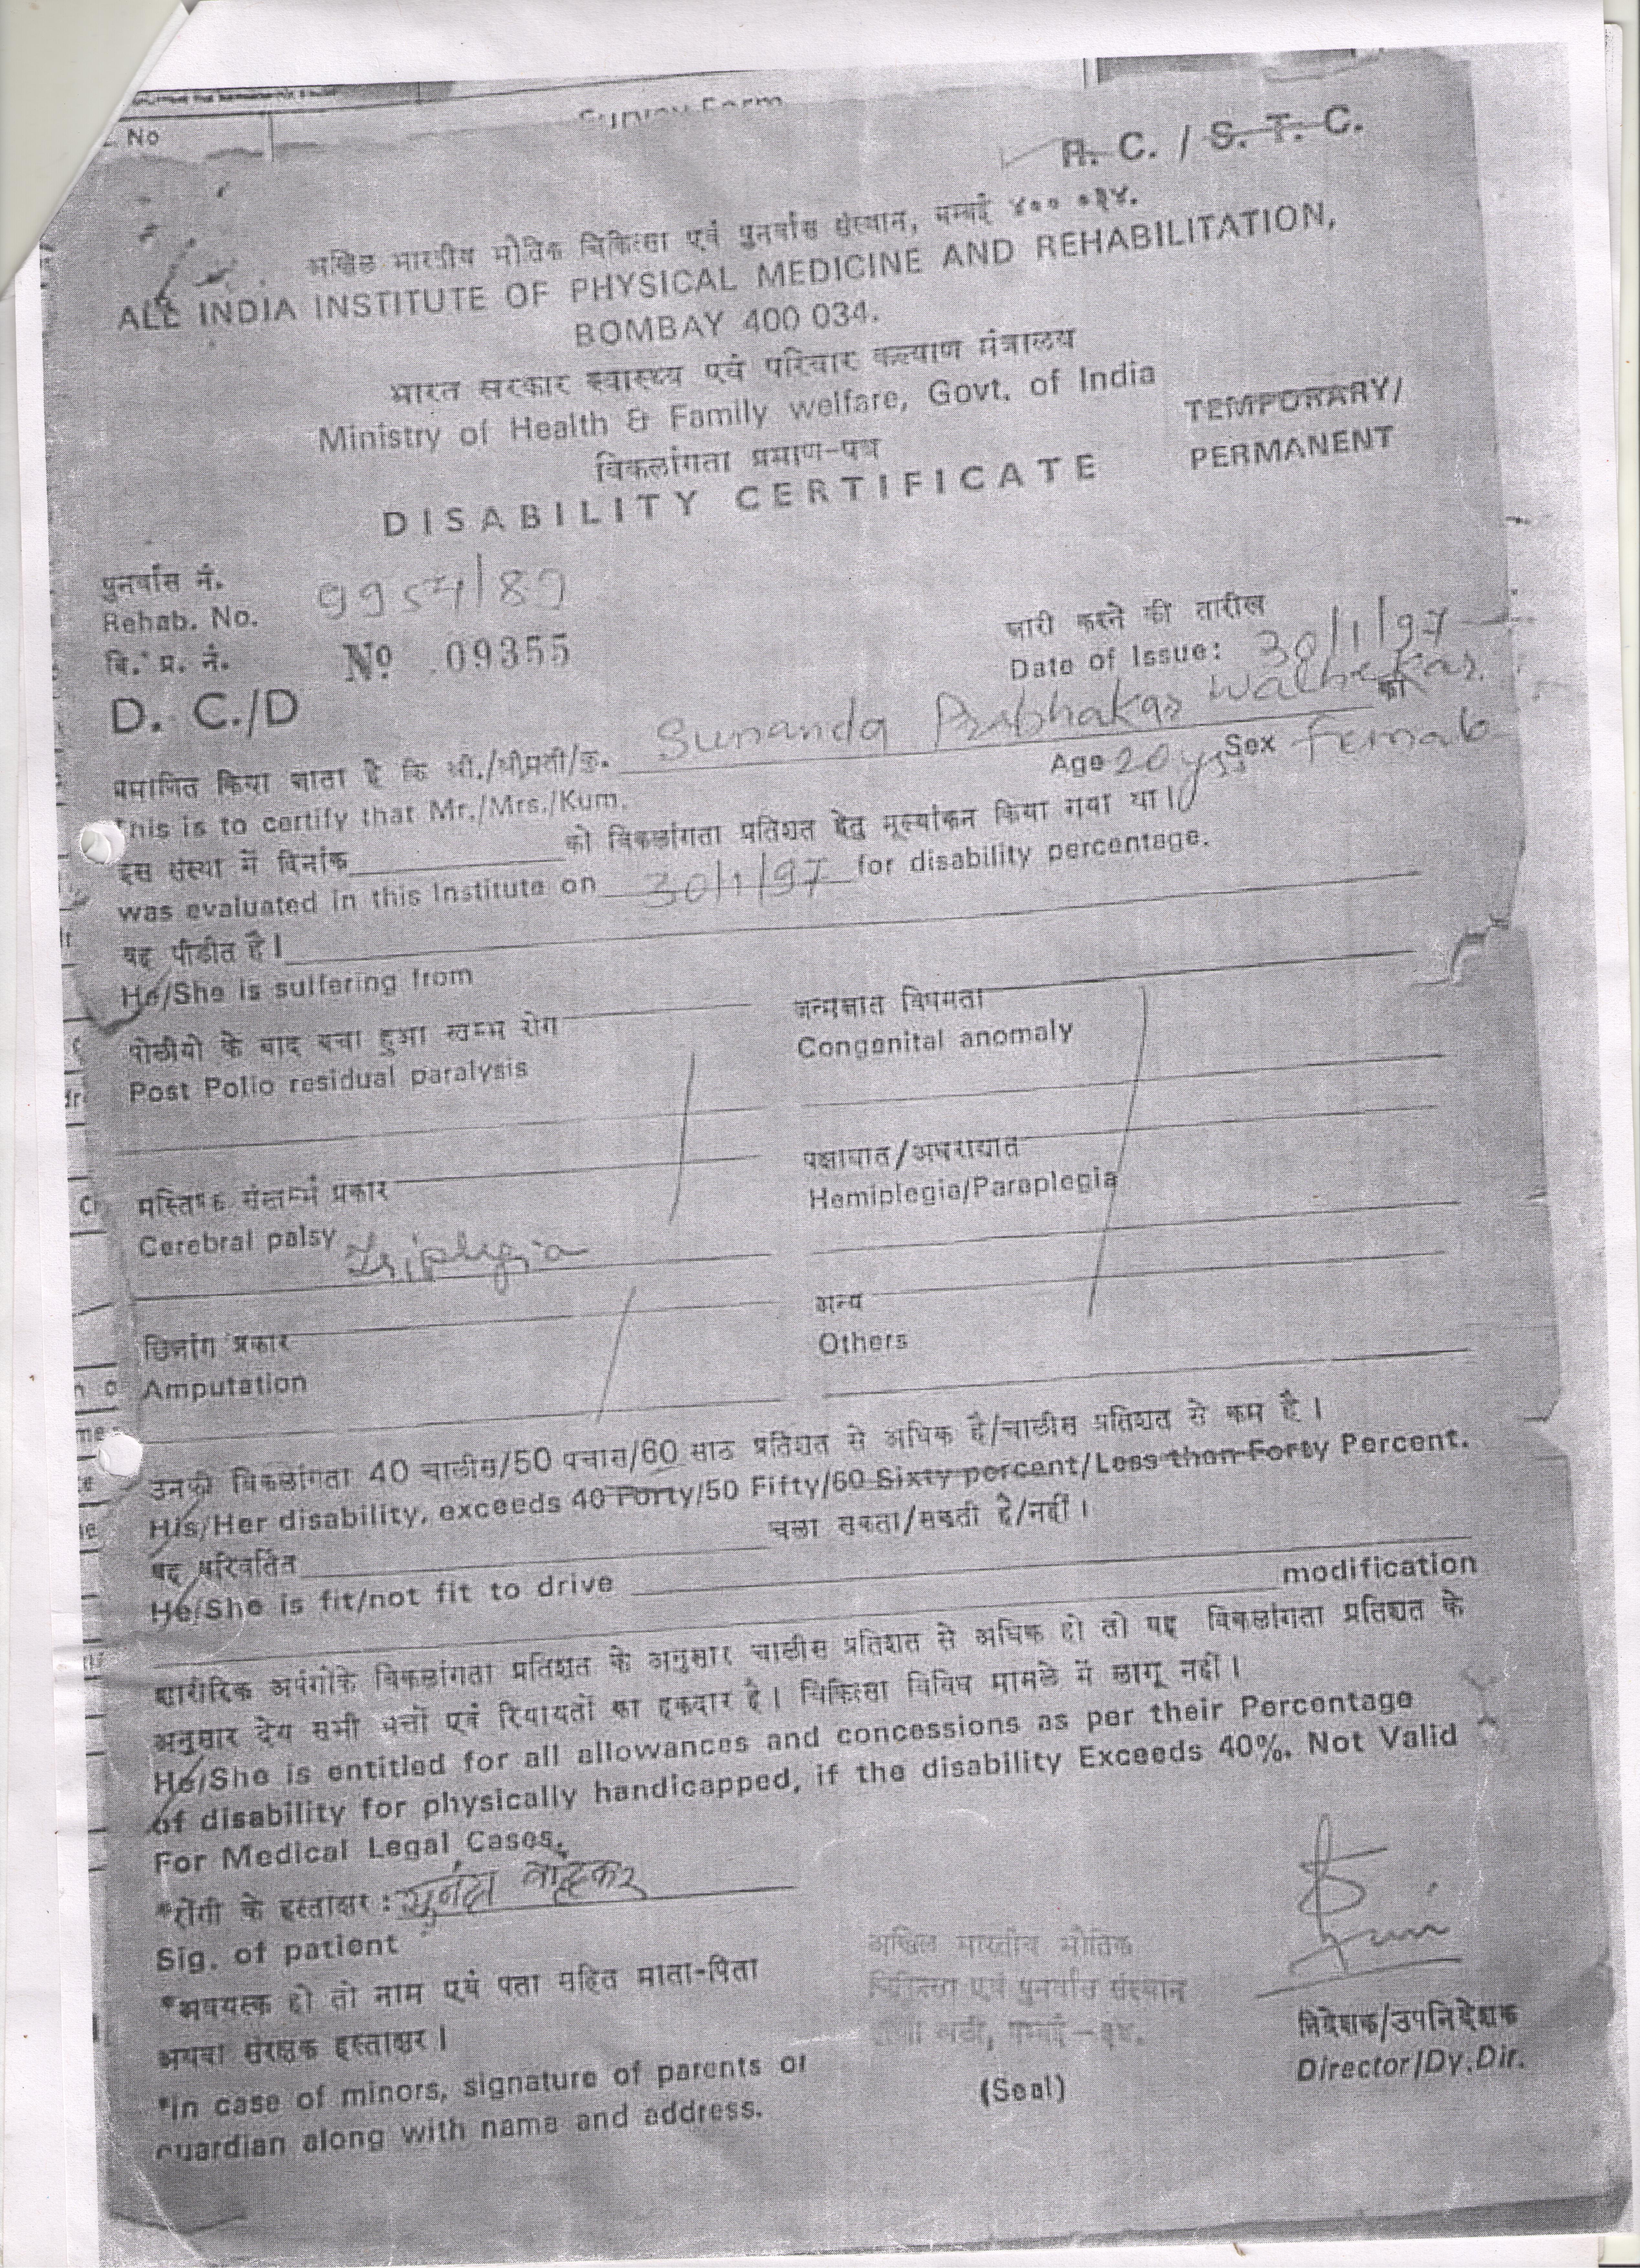 No
R. C. / S. T. C.
अखिल भारतीय भौतिक चिकित्सा एवं पुनर्वास संस्थान, बम्बई ४०० ०३४.
ALL INDIA INSTITUTE OF PHYSICAL MEDICINE AND REHABILITATION,
BOMBAY 400 034.
भारत सरकार स्वास्थ्य एवं परिवार कल्याण मंत्रालय
Ministry of Health & Family welfare, Govt. of India
TEMPORARY/
PERMANENT
विकलांगता प्रमाण-पत्र
DISABILITY CERTIFICATE
पुनर्वास नं.
Rehab. No. 9954/89
वि. प्र. नं. No 09355
D. C./D
जारी करने की तारीख
Date of Issue: 30/1/97
प्रमाणित किया जाता है कि श्री./श्रीमती/कु. Sunanda Prabhakar Walhekar को
This is to certify that Mr./Mrs./Kum. Age 20 yrs Sex Female
इस संस्था में दिनांक को विकलांगता प्रतिशत हेतु मूल्यांकन किया गया था।
was evaluated in this Institute on 30/1/97 for disability percentage.
यह पीडीत है।
He/She is suffering from
पोलीयो के बाद बचा हुआ स्तम्भ रोग
Post Polio residual paralysis
जन्मजात विषमता
Congenital anomaly
प्रकार
Cerebral palsy Triplegia
Hemiplegia/Paraplegia
प्रकार
Amputation
अन्य
Others
उनकी विकलांगता 40 चालीस/50 पचास/60 साठ प्रतिशत से अधिक है/चालीस प्रतिशत से कम है।
His/Her disability, exceeds 40 Forty/50 Fifty/60 Sixty percent/Less than Forty Percent.
यह परिवर्तित चला सकता/सकती है/नहीं।
He/She is fit/not fit to drive modification
शारीरिक अपंगोंके विकलांगता प्रतिशत के अनुसार चालीस प्रतिशत से अधिक हो तो यह विकलांगता प्रतिशत के
अनुसार देय सभी भत्तों एवं रियायतों का हकदार है। चिकित्सा विविध मामले में लागू नहीं।
He/She is entitled for all allowances and concessions as per their Percentage
of disability for physically handicapped, if the disability Exceeds 40%. Not Valid
For Medical Legal Cases.
*रोगी के हस्ताक्षर : सुनंदा वाल्हेकर
Sig. of patient
*अवयस्क हो तो नाम एवं पता सहित माता-पिता
अथवा संरक्षक हस्ताक्षर।
*In case of minors, signature of parents or
guardian along with name and address.
अखिल भारतीय भौतिक
चिकित्सा एवं पुनर्वास संस्थान
(Seal)
निदेशक/उपनिदेशक
Director/Dy. Dir.